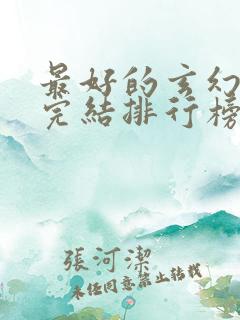 最好的玄幻
完結排行榜
張河潔
未經同意禁止轉載